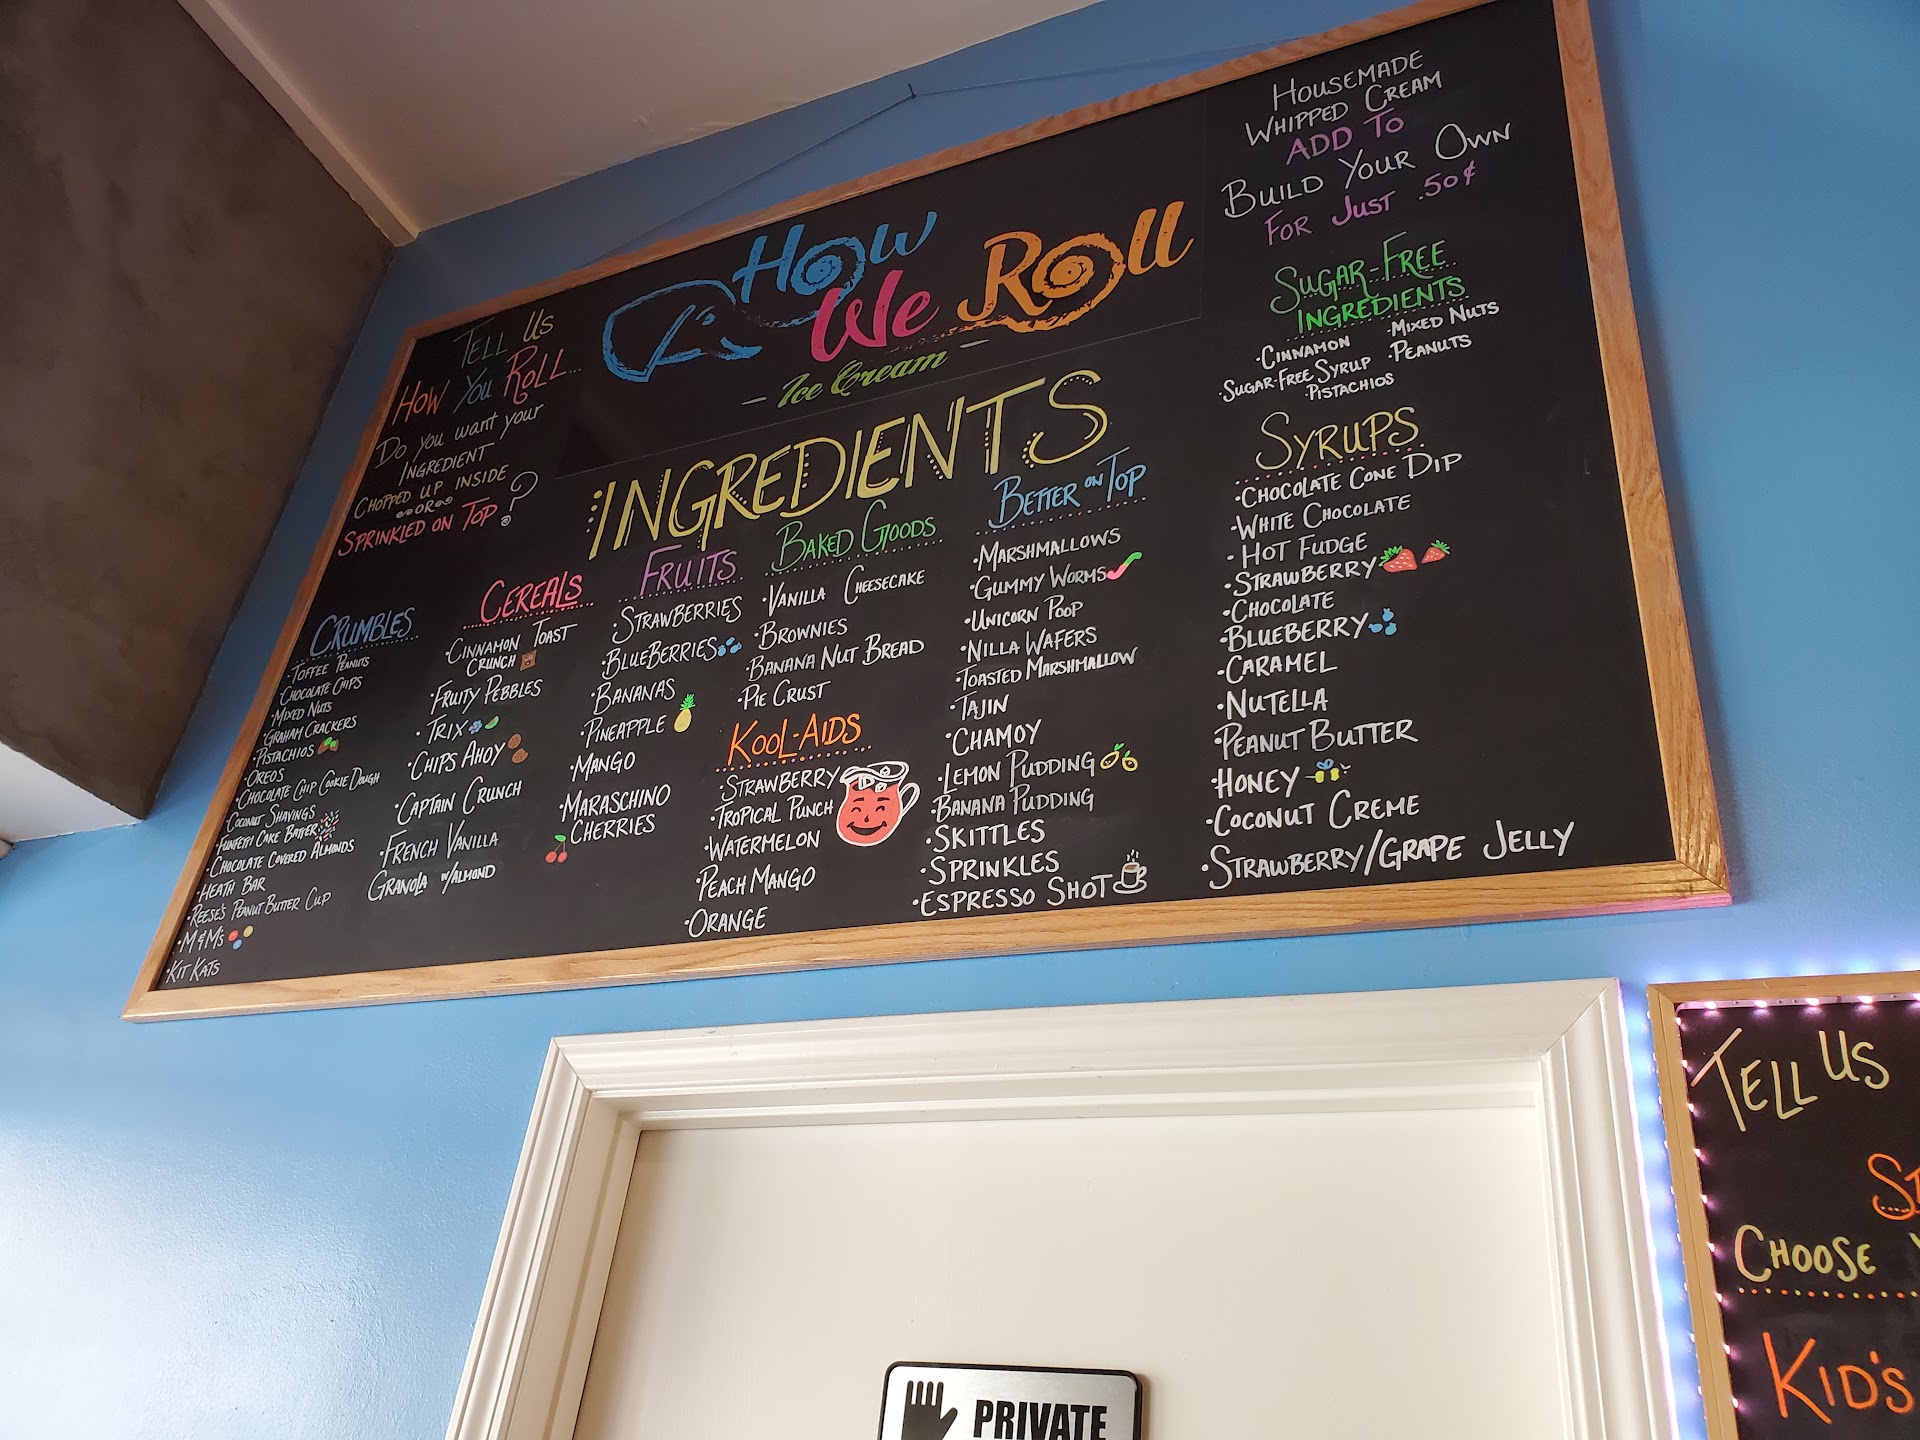 Tell Us
How You Roll...
Do you want your
Ingredient
Chopped up inside
OR
Sprinkled on Top?
How
We Roll
- Ice Cream -
Housemade
Whipped Cream
Add To
Build Your Own
For Just .50¢
Sugar-Free
Ingredients
·Cinnamon
·Mixed Nuts
·Sugar-Free Syrup
·Peanuts
·Pistachios
Ingredients
Crumbles
·Toffee Peanuts
·Chocolate Chips
·Mixed Nuts
·Graham Crackers
·Pistachios
·Oreos
·Chocolate Chip Cookie Dough
·Coconut Shavings
·Funfetti Cake Batter
·Chocolate Covered Almonds
·Heath Bar
·Reese's Peanut Butter Cup
·M&M's
·Kit Kats
Cereals
·Cinnamon Toast
Crunch
·Fruity Pebbles
·Trix
·Chips Ahoy
·Captain Crunch
·French Vanilla
Granola w/Almond
Fruits
·Strawberries
·Blueberries
·Bananas
·Pineapple
·Mango
·Maraschino
Cherries
Baked Goods
·Vanilla Cheesecake
·Brownies
·Banana Nut Bread
·Pie Crust
Kool-Aids
·Strawberry
·Tropical Punch
·Watermelon
·Peach Mango
·Orange
Better on Top
·Marshmallows
·Gummy Worms
·Unicorn Poop
·Nilla Wafers
·Toasted Marshmallow
·Tajin
·Chamoy
·Lemon Pudding
·Banana Pudding
·Skittles
·Sprinkles
·Espresso Shot
Syrups
·Chocolate Cone Dip
·White Chocolate
·Hot Fudge
·Strawberry
·Chocolate
·Blueberry
·Caramel
·Nutella
·Peanut Butter
·Honey
·Coconut Creme
·Strawberry/Grape Jelly
Tell Us
Choose
Kid's
PRIVATE